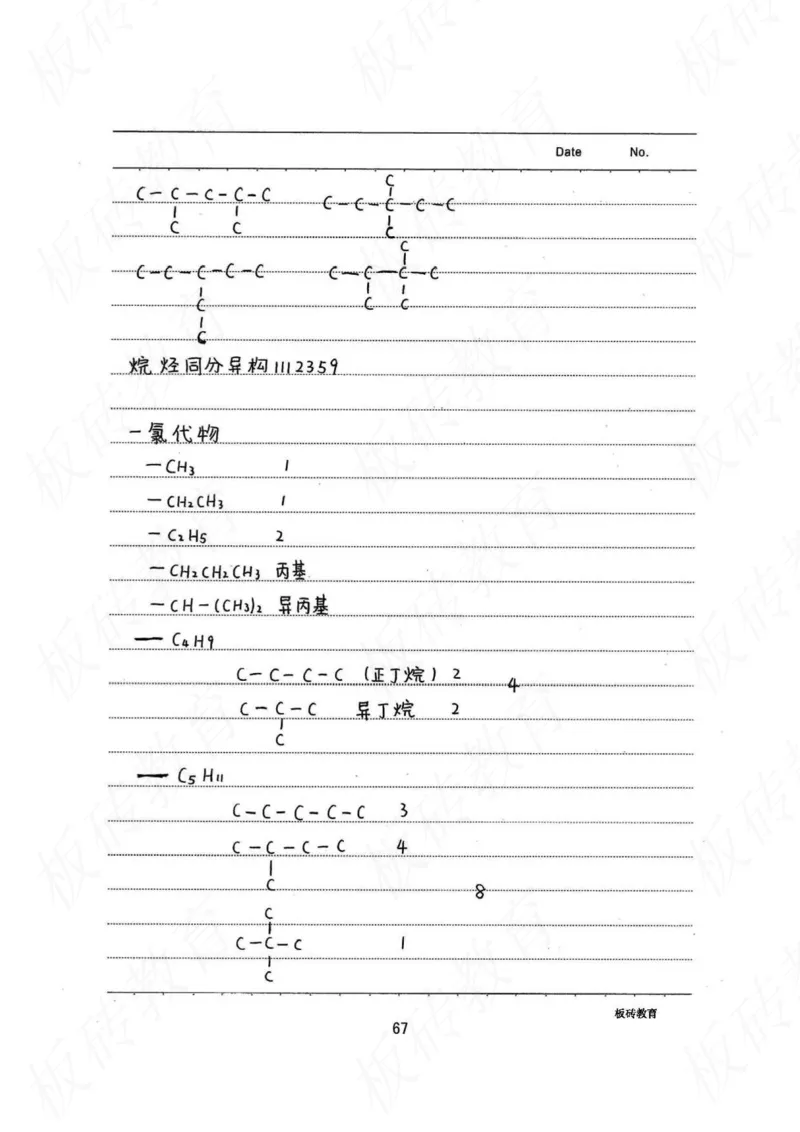 Date No.
C-C-C-C-C
C C
C
C-C-C-C-C
C
C-C-C-C-C
C
C
C
C-C-C-C
C C
烷烃同分异构1112359
一氯代物
-CH₃ 1
-CH₂CH₃ 1
-C₂H₅ 2
-CH₂CH₂CH₃ 丙基
-CH-(CH₃)₂ 异丙基
-C₄H₉
C-C-C-C (正丁烷) 2
4
C-C-C 异丁烷 2
C
-C₅H₁₁
C-C-C-C-C 3
C-C-C-C 4
C
8
C
C-C-C 1
C
板砖教育
67